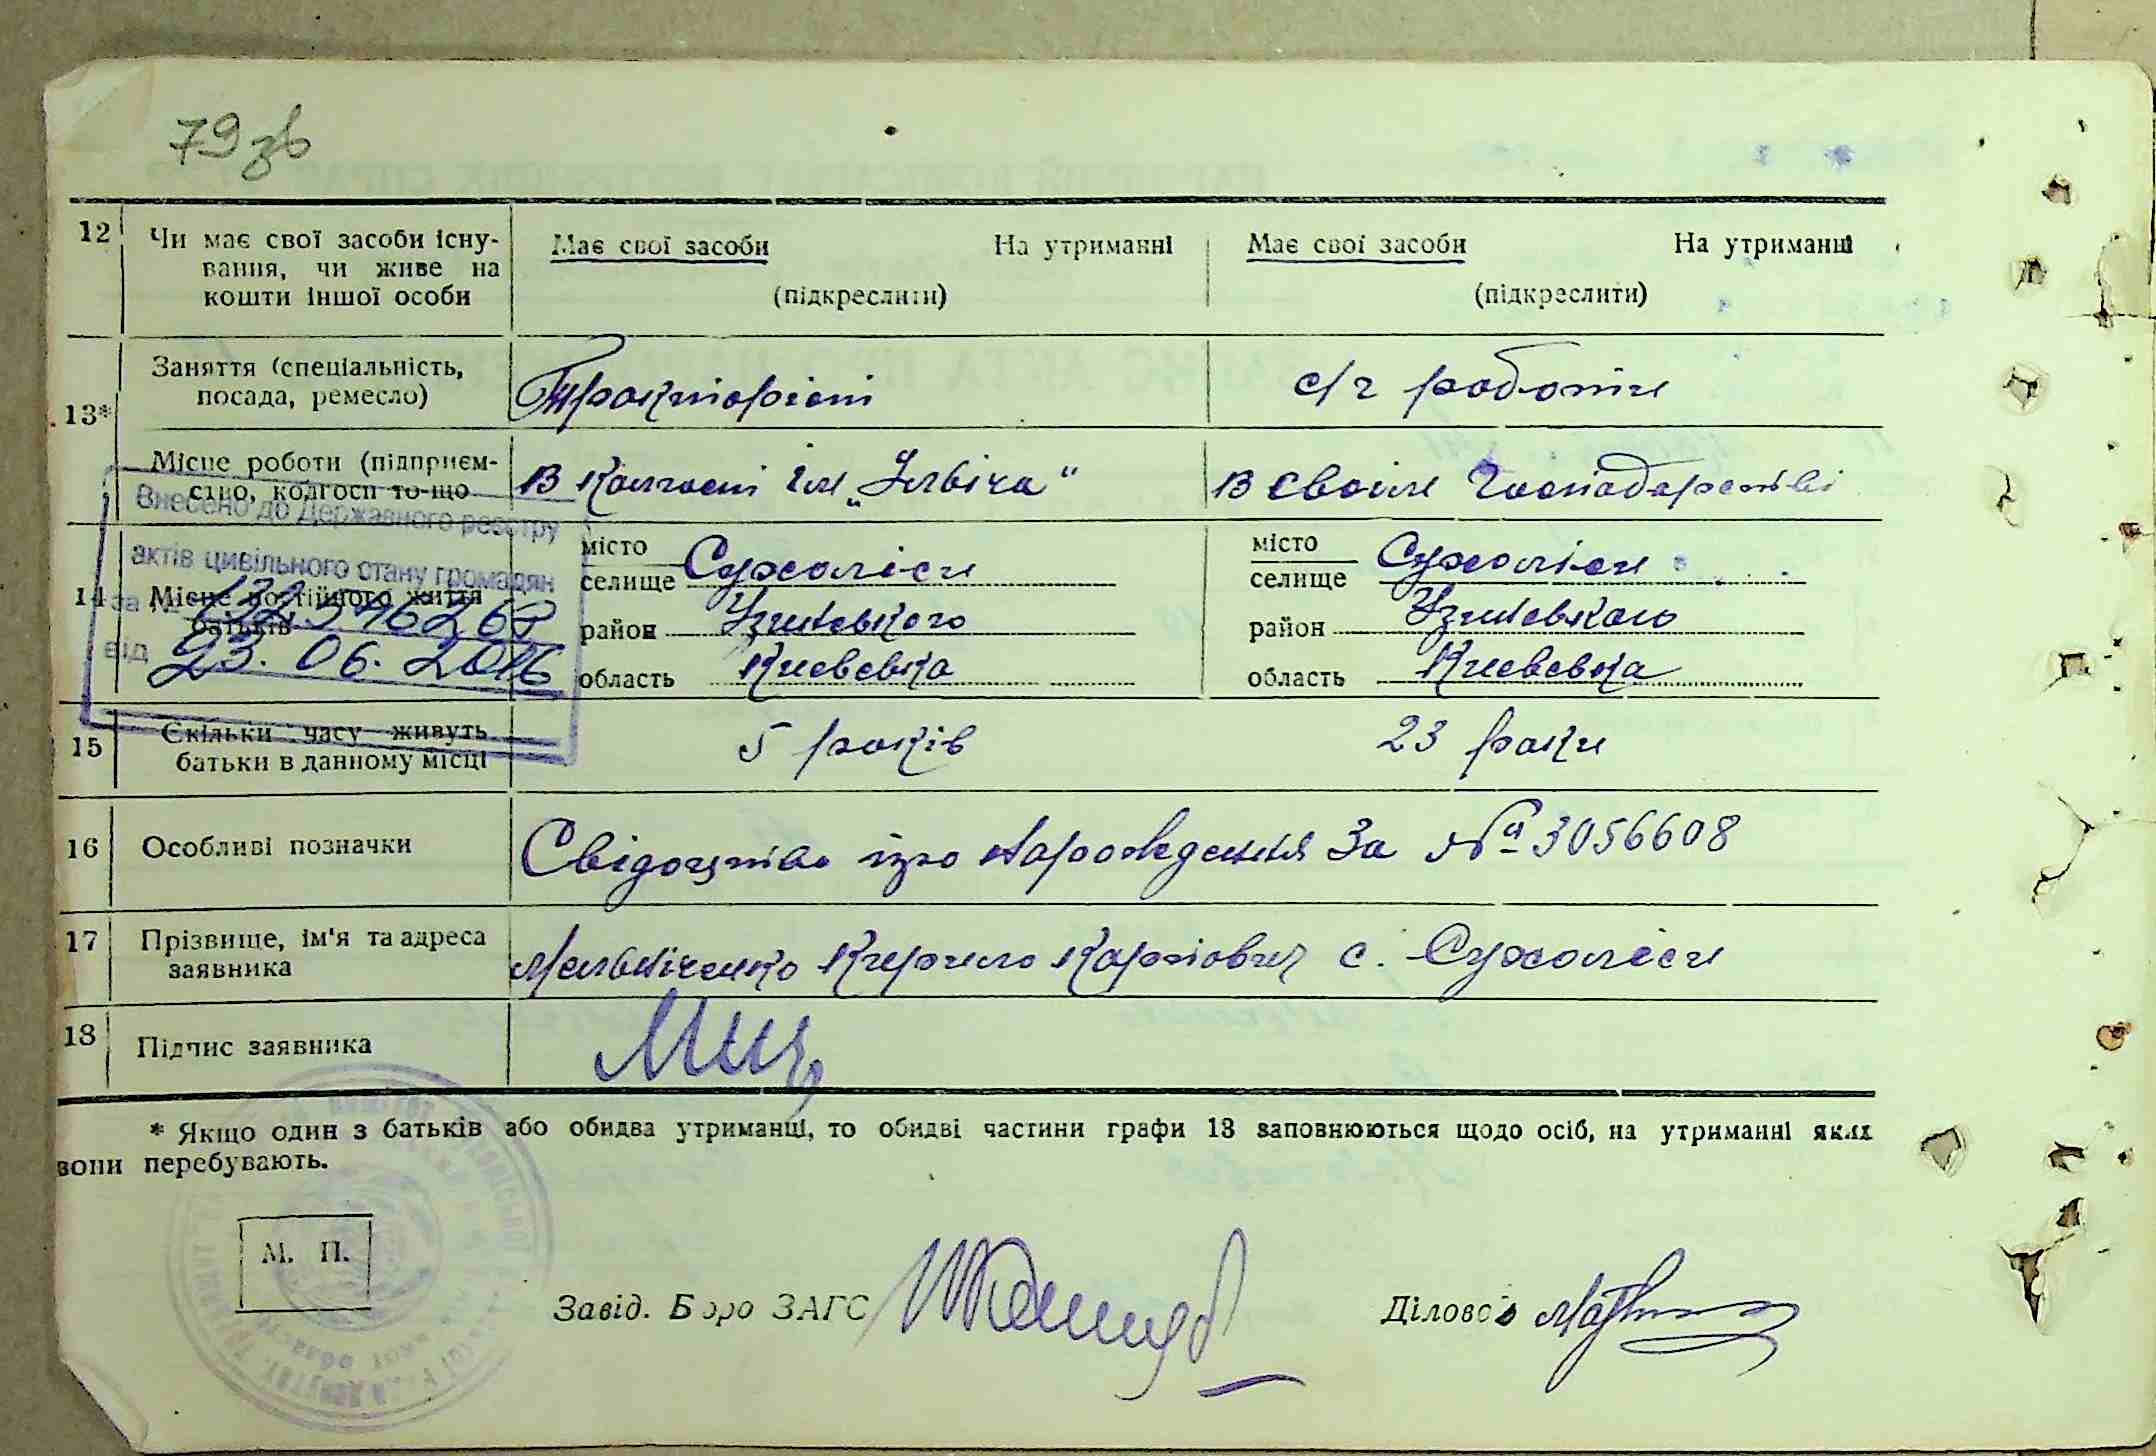 79 зв
12 Чи має свої засоби існу-
вання, чи живе на
кошти іншої особи
Має свої засоби На утриманні
(підкреслити)
Має свої засоби На утриманні
(підкреслити)
13*
Заняття (спеціальність,
посада, ремесло)
Тракторіст
с/г роботи
Місце роботи (підприєм-
ство, колгосп то-що
В колгоспі ім „Ілвіча“
В своїм господарстві
Внесено до Державного реєстру
актів цивільного стану громадян
за №
від 23. 06. 2016
14 Місце постійного життя
батьків
місто
селище Сухоліси
район Узинського
область Киевська
місто
селище Сухоліси
район Узинського
область Киевська
15 Скільки часу живуть
батьки в данному місці
5 років
23 роки
16 Особливі позначки
Свідоцтво про народження За № 3056608
17 Прізвище, ім'я та адреса
заявника
Мельніченко Кирило Карпович с. Сухоліси
18 Підпис заявника
* Якщо один з батьків або обидва утриманці, то обидві частини графи 13 заповнюються щодо осіб, на утриманні яких
вони перебувають.
М. П.
Завід. Бюро ЗАГС
Діловод